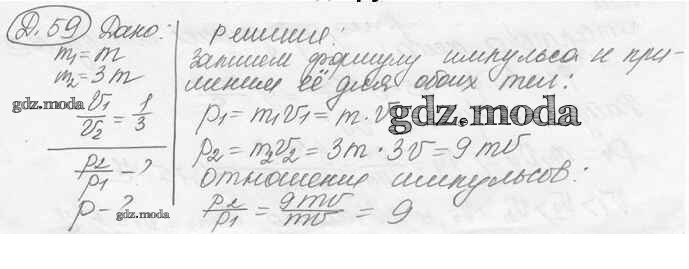 Д.59 Дано:
m₁ = m
m₂ = 3m
v₁/v₂ = 1/3
p₂/p₁ - ?
p - ?
Решение:
Запишем формулу импульса и при-
меним её для обоих тел:
p₁ = m₁v₁ = m · v
p₂ = m₂v₂ = 3m · 3v = 9mv
отношение импульсов:
p₂/p₁ = 9mv/mv = 9
gdz.moda
gdz.moda
gdz.moda